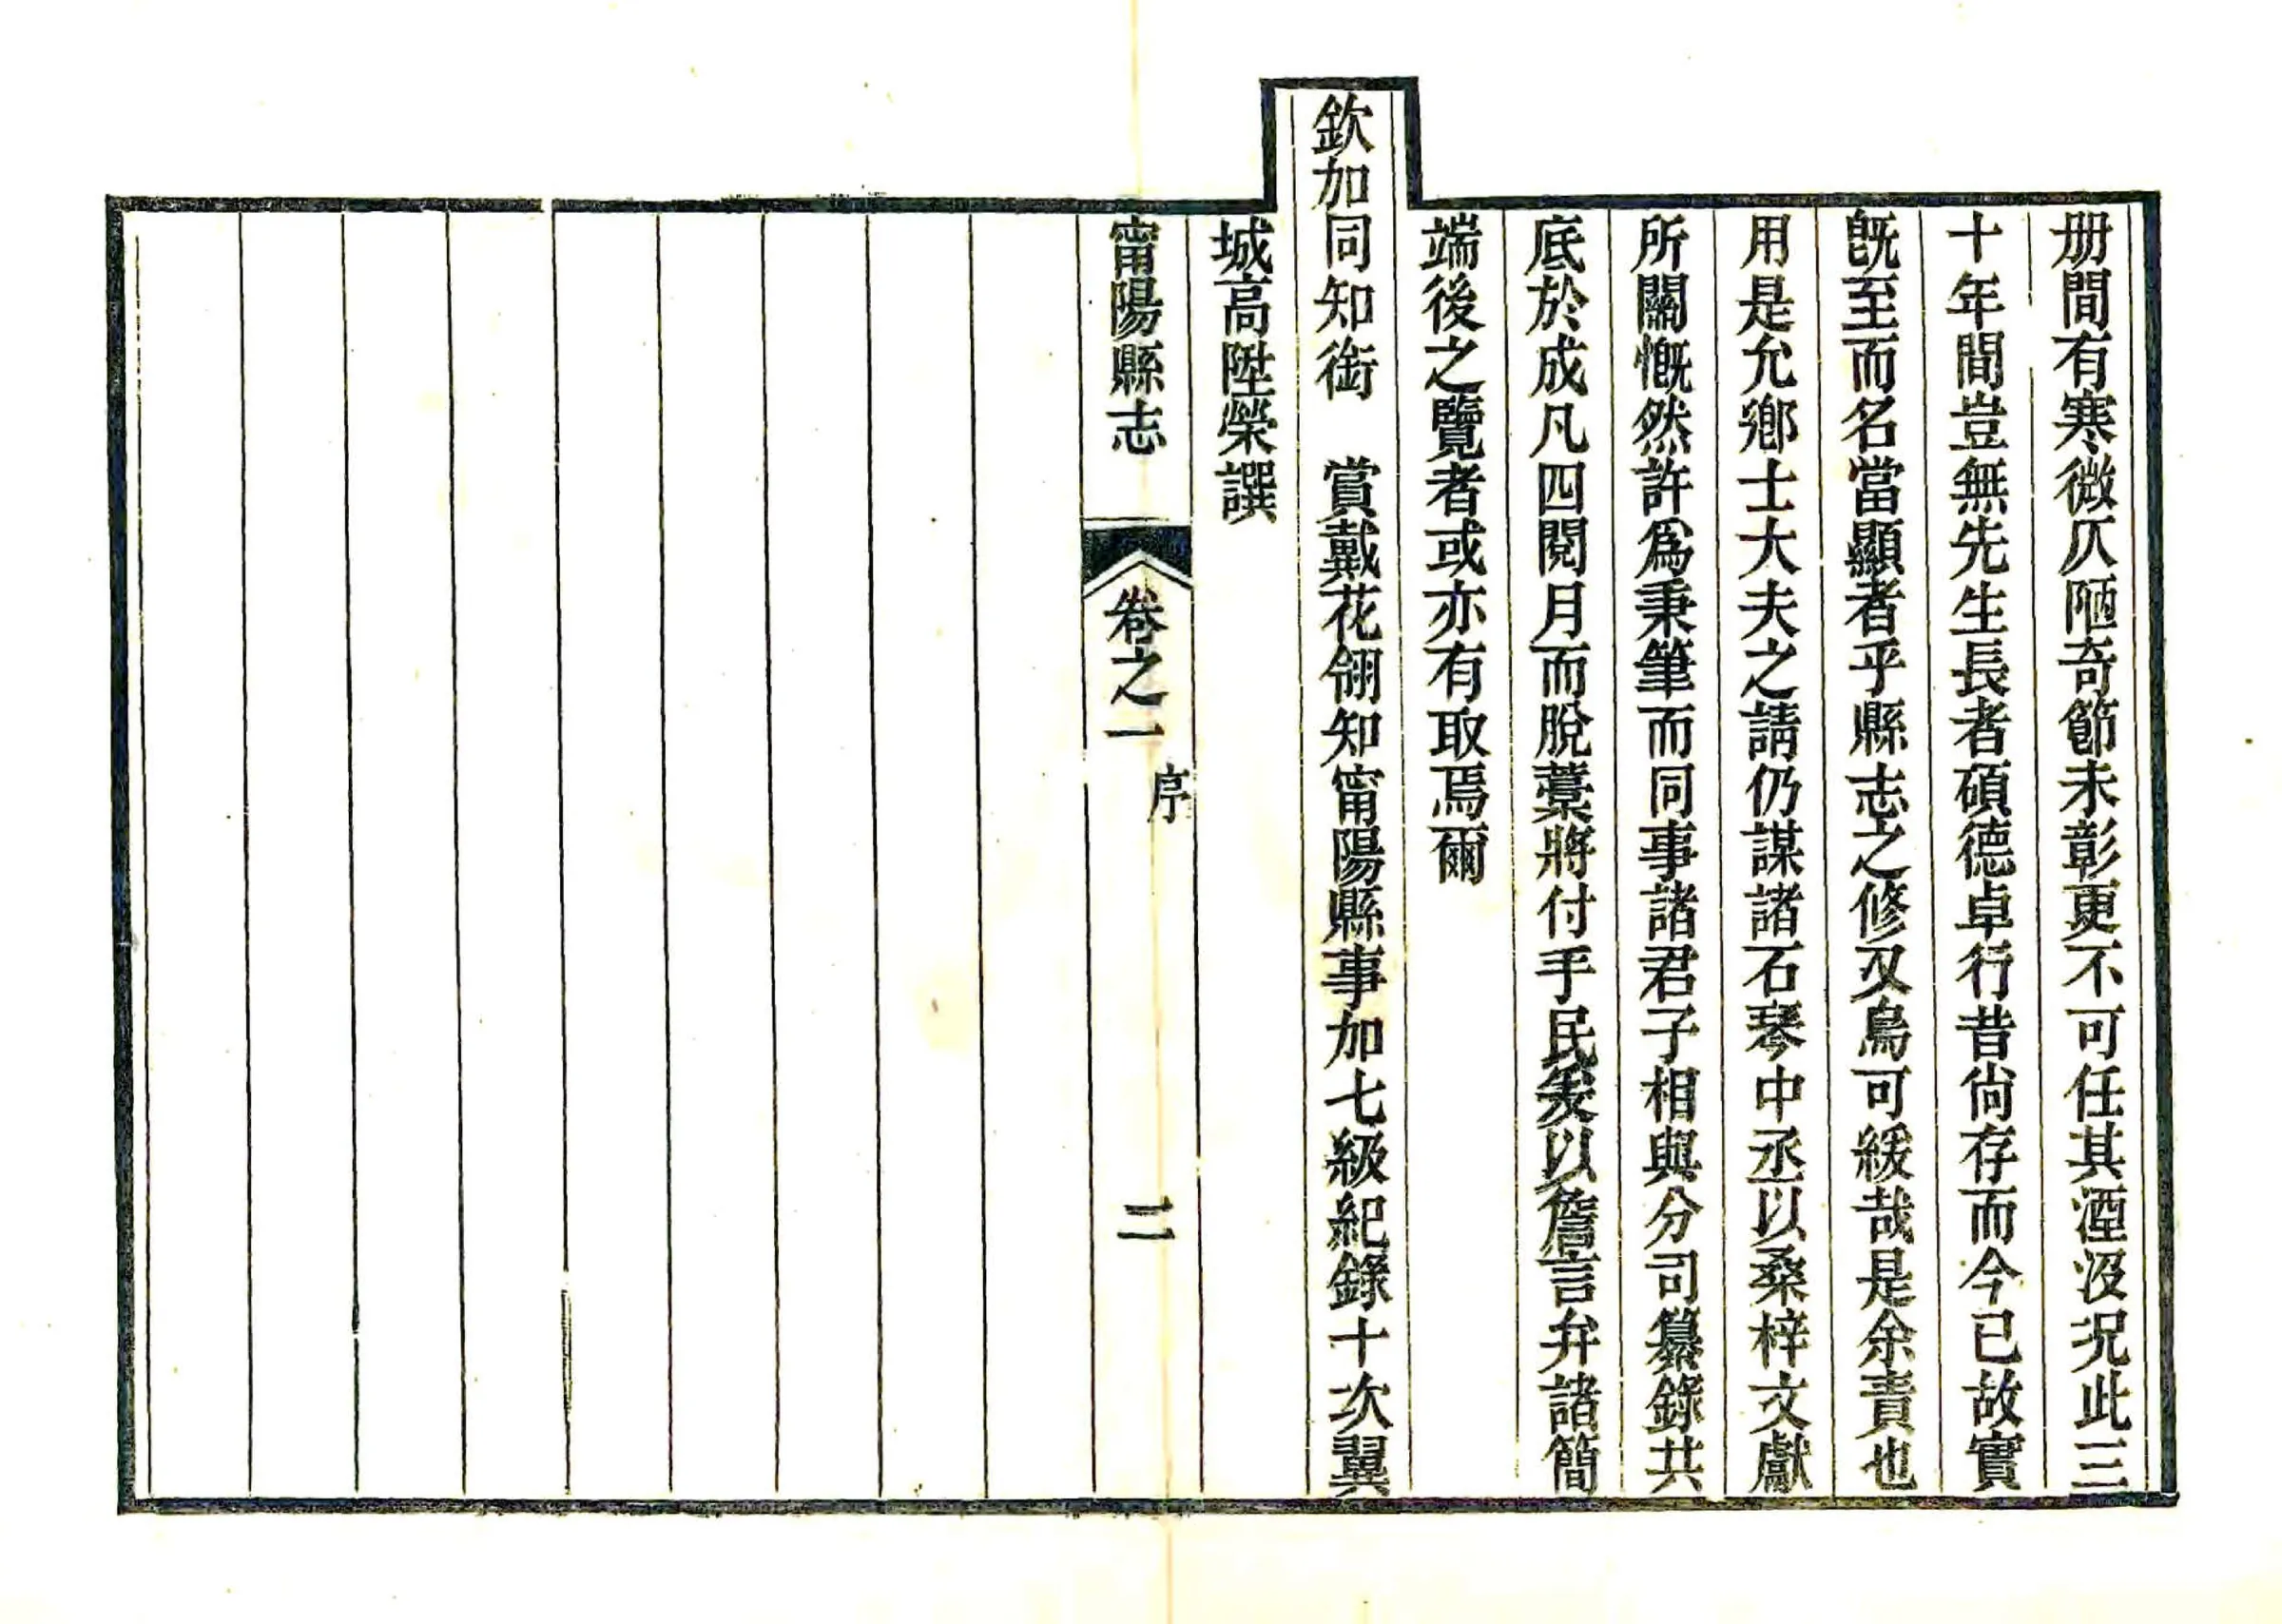 册間有寒微仄陋奇節未彰更不可任其湮沒况此三
十年間豈無先生長者碩德卓行昔尙存而今已故實
旣至而名當顯者乎縣志之修又烏可緩哉是余責也
用是允鄕士大夫之請仍謀諸石琴中丞以桑梓文獻
所關慨然許爲秉筆而同事諸君子相與分司纂錄共
底於成凡四閱月而脫藁將付手民爰以詹言弁諸簡
端後之覽者或亦有取焉爾
欽加同知銜　賞戴花翎知甯陽縣事加七級紀錄十次翼
城高陞榮譔
甯陽縣志
卷之一
序
二